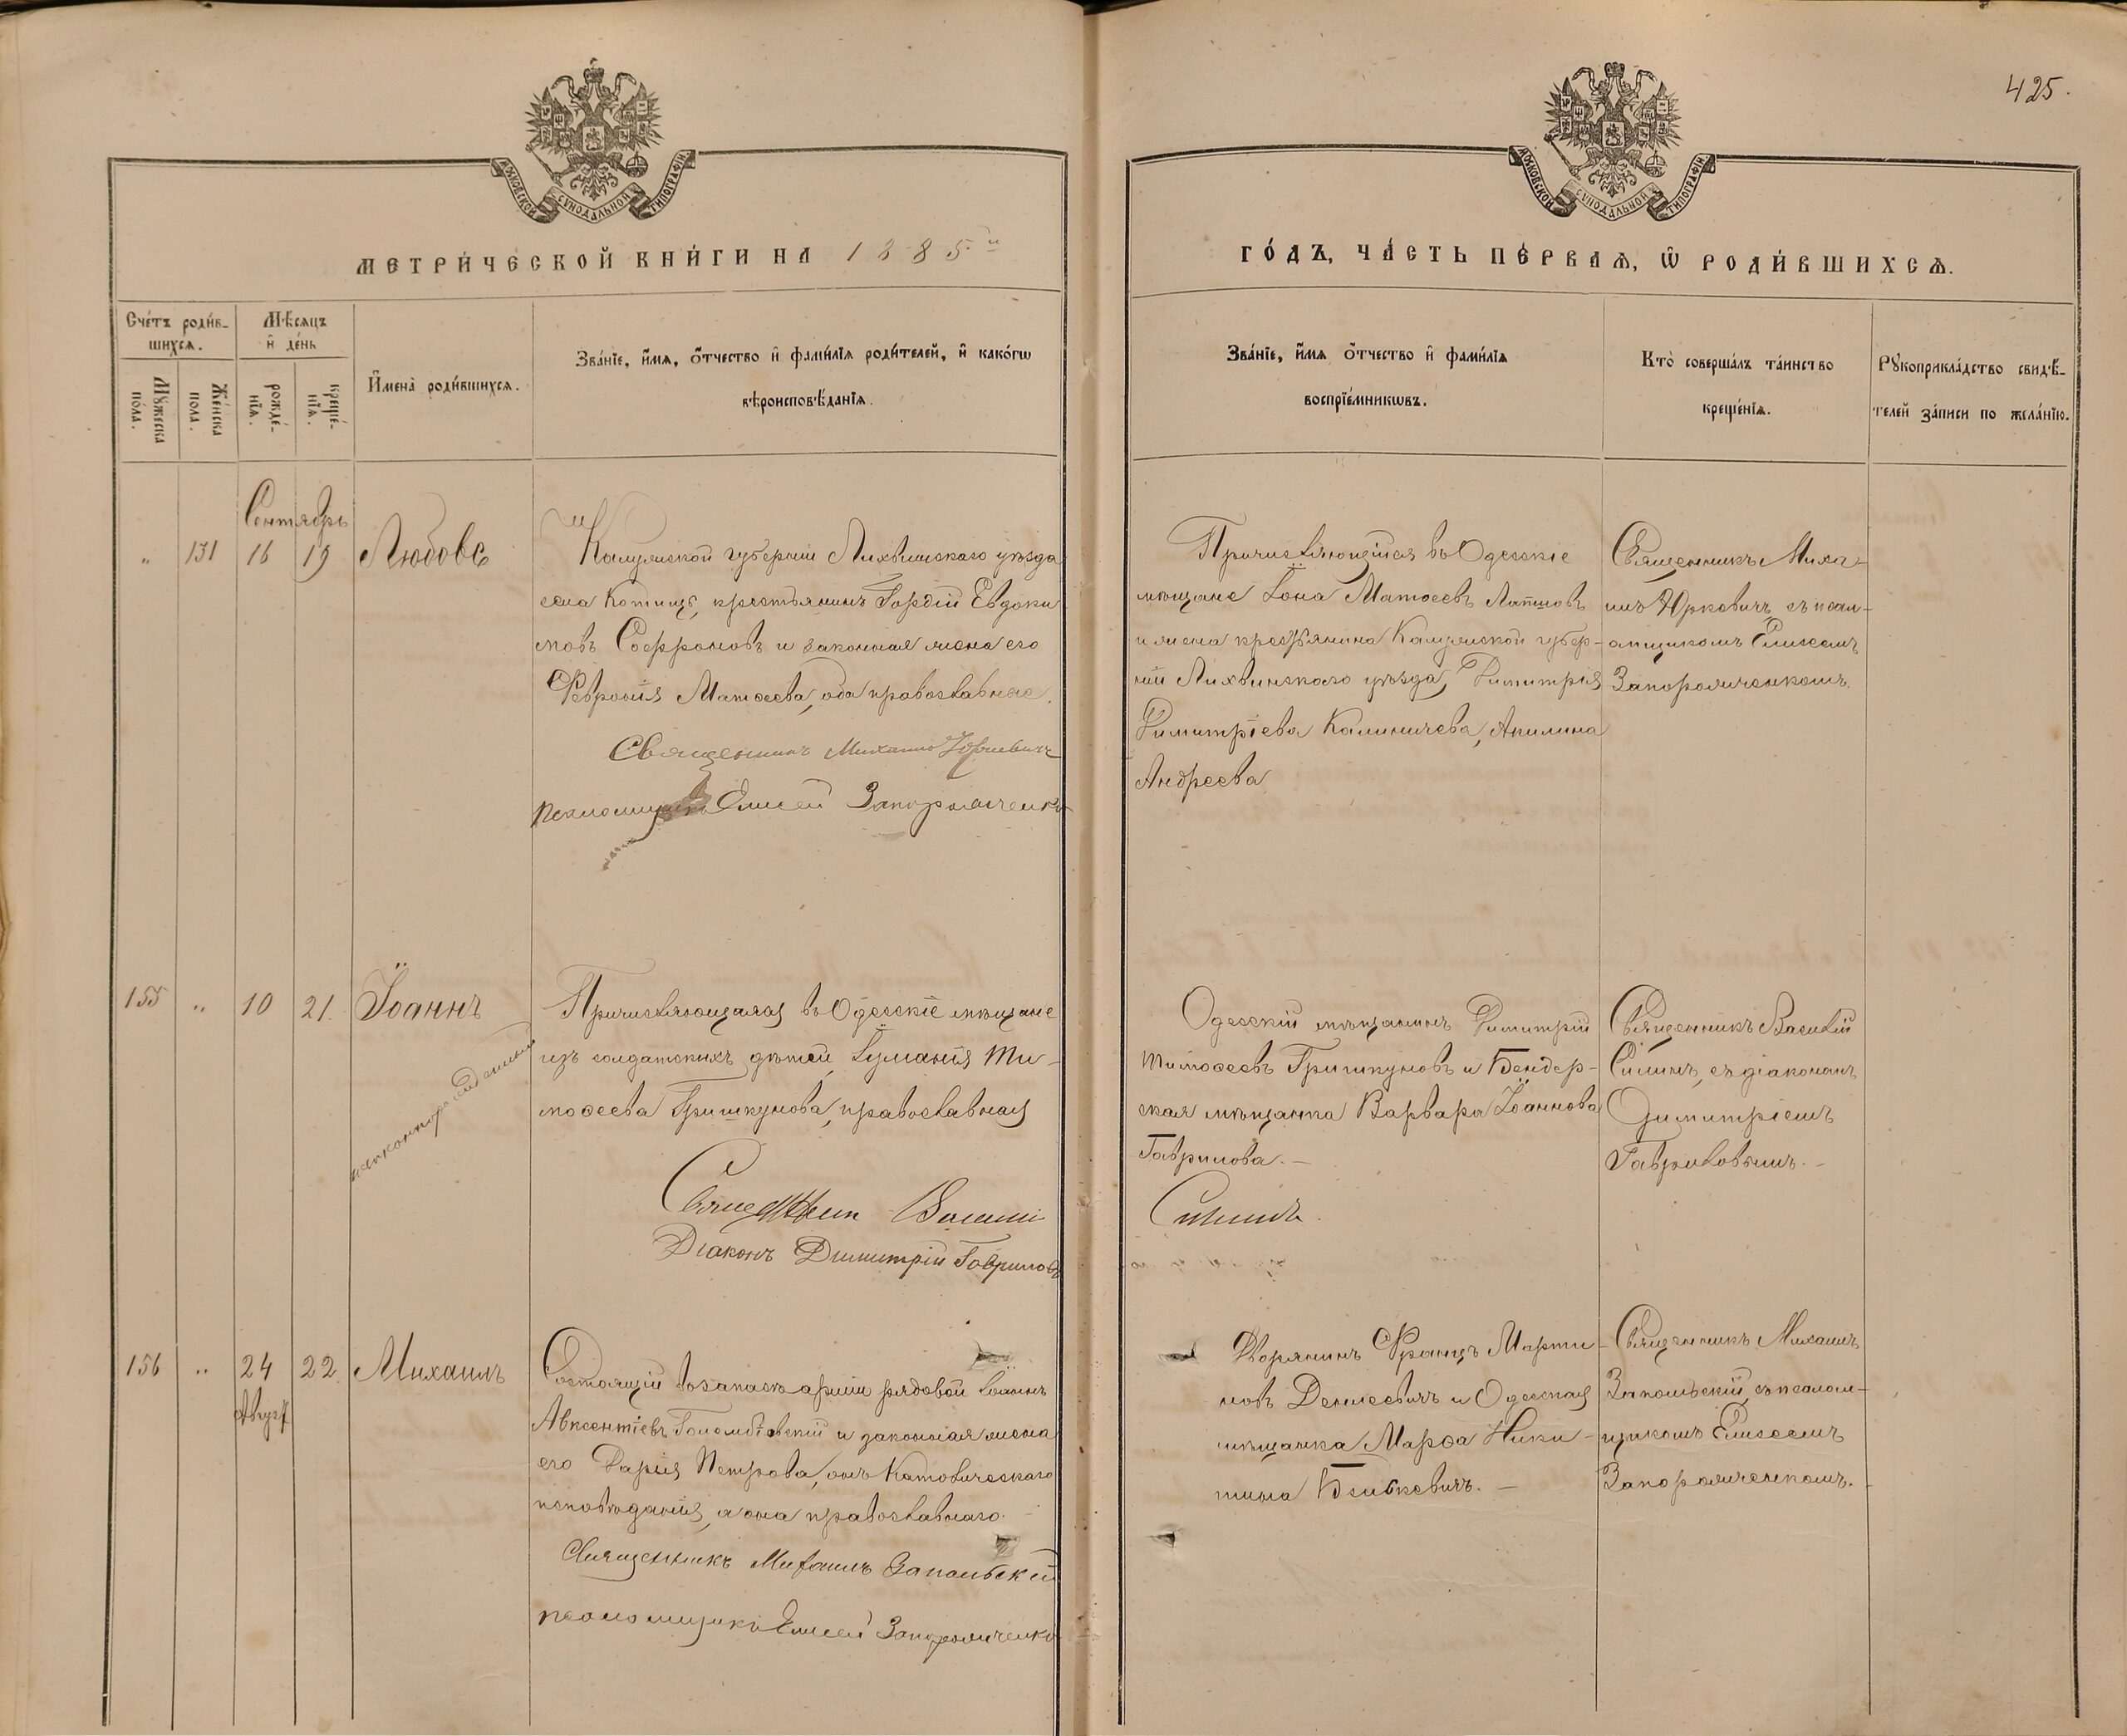 425.
МОСКОВСКОЙ СУНОДАЛЬНОЙ ТИПОГРАФІИ
МОСКОВСКОЙ СУНОДАЛЬНОЙ ТИПОГРАФІИ
МЕТРИ́ЧЕСКОЙ КНИ́ГИ НА 1885 й
ГО́ДЪ, ЧА́СТЬ ПЕ́РВАѦ, Ѡ РОДИ́ВШИХСѦ.
Сче́тъ роди́в-
шихсѧ.
Мѣ́сѧцъ
и҆ де́нь
Мꙋ́жеска
по́ла.
Же́нска
пола.
рожде́-
нїѧ.
креще́-
нїѧ.
И҆мена̀ роди́вшихсѧ.
Зва́нїе, и҆́мѧ, ѻ҆́тчество и҆ фами́лїѧ роди́телей, и҆ како́гѡ
вѣроисповѣ́данїѧ.
Зва́нїе, и҆́мѧ ѻ҆́тчество и҆ фами́лїѧ
воспрїе́мникѡвъ.
Кто̀ соверша́лъ та́инство
креще́нїѧ.
Рꙋкоприкла́дство свидѣ́-
телей за́писи по жела́нїю.
Сентябрь
" 131 16 19 Любовь
Калужской губерніи Лихвинскаго уѣзда
села крестьянинъ Гордій Евдоки
мовъ Софроновъ и законная жена его
Февронія Матѳеева, оба православные.
Священникъ Михаилъ Юркевичъ
псаломщикъ Елисей Запорожченко
Причисляющійся въ Одесскіе
мѣщане Іона Матѳеевъ Лапшовъ
и жена крестьянина Калужской губер-
ніи Лихвинскаго уѣзда, Димитрія
Димитріева Калиничева, Акилина
Андреева
Священникъ Миха-
илъ Юркевичъ, съ псал-
омщикомъ Елисеемъ
Запорожченкомъ.
155 " 10 21. Іоаннъ
незаконнорожденный
Причисляющаяся въ Одесскіе мѣщане
изъ солдатскихъ дѣтей, Іуліанія Ти-
моѳеева Гришкунова, православная
Священник Василій
Діаконъ Димитрій Гавриловъ
Одесскій мѣщанинъ Димитрій
Тимоѳеевъ Гришкуновъ и Бендер-
ская мѣщанка Варвара Іоаннова
Гаврилова.—
Силинъ.
Священникъ Василій
Силинъ, съ діакономъ
Димитріемъ
Гавриловымъ.—
156 " 24 22. Михаилъ
Августъ
Состоящій въ запасѣ арміи рядовой Іоаннъ
Авксентіевъ Голембіовскій и законная жена
его Дарія Петрова, онъ Католическаго
исповѣданія, а она православнаго.
Священникъ Михаилъ Запольскій
псаломщикъ Елисей Запорожченко
Дворянинъ Францъ Марти-
новъ и Одесская
мѣщанка Марѳа Ники-
тина
Священникъ Михаилъ
Запольскій, съ псалом-
щикомъ Елисеемъ
Запорожченкомъ.